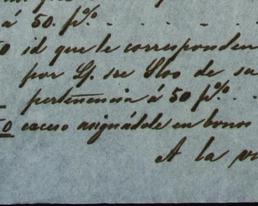 á 50. p%.
0 id que le corresponden
por Lf. de Slos de su
pertenencia á 50 p%. . .
0 exceso asignádole en bonos
A la